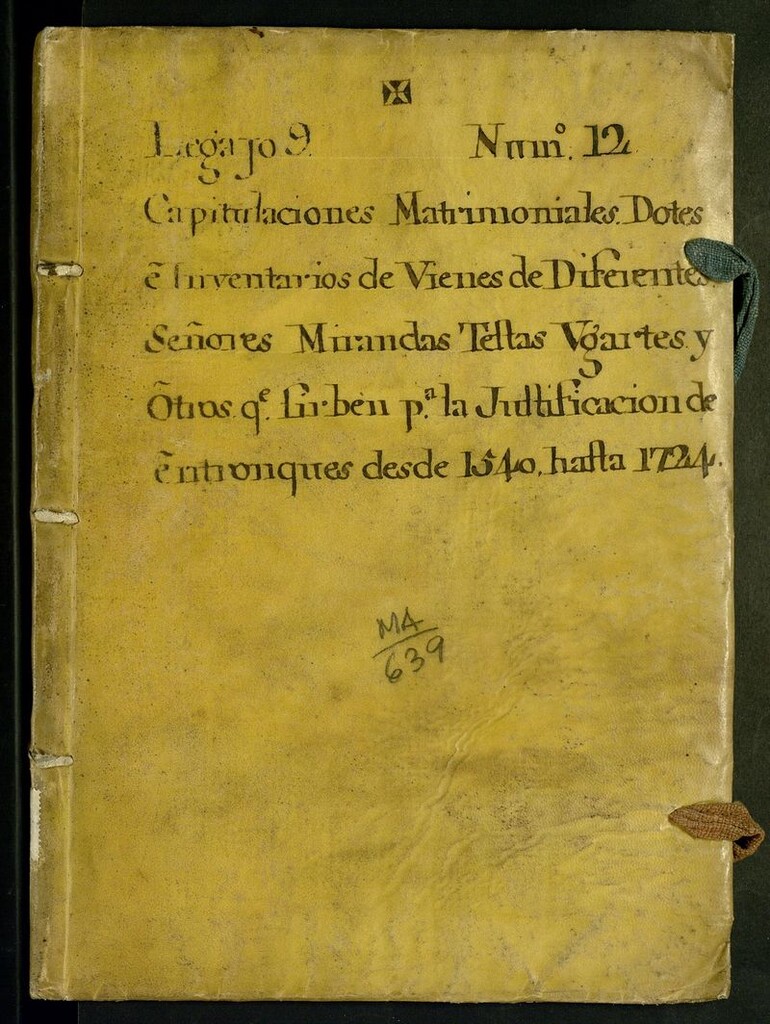 Legajo 9. Numº. 12
Capitulaciones Matrimoniales. Dotes
ē Inventarios de Vienes de Diferentes.
Señores Mirandas Tellas Vgartes y
Otros. qᵉ. sirben pª. la Justificacion de
entronques desde 1540. hasta 1724.
MA
639